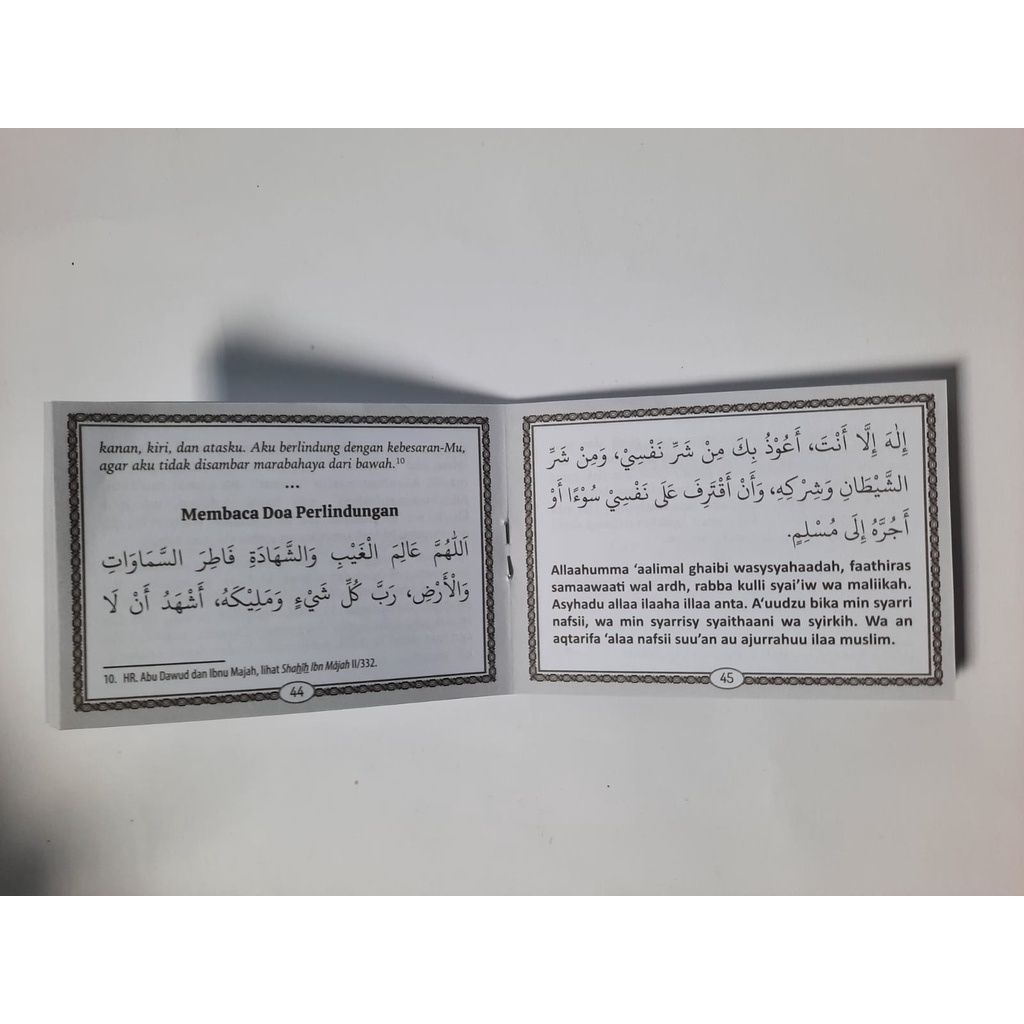 kanan, kiri, dan atasku. Aku berlindung dengan kebesaran-Mu,
agar aku tidak disambar marabahaya dari bawah.¹⁰
...
Membaca Doa Perlindungan
اَللّٰهُمَّ عَالِمَ الْغَيْبِ وَالشَّهَادَةِ فَاطِرَ السَّمَاوَاتِ
وَالْأَرْضِ، رَبَّ كُلِّ شَيْءٍ وَمَلِيْكَهُ، أَشْهَدُ أَنْ لَا
10. HR. Abu Dawud dan Ibnu Majah, lihat Shaḥîḥ Ibn Mâjah II/332.
44
إِلٰهَ إِلَّا أَنْتَ، أَعُوْذُ بِكَ مِنْ شَرِّ نَفْسِيْ، وَمِنْ شَرِّ
الشَّيْطَانِ وَشِرْكِهِ، وَأَنْ أَقْتَرِفَ عَلَى نَفْسِيْ سُوْءًا أَوْ
أَجُرَّهُ إِلَى مُسْلِمٍ.
Allaahumma ‘aalimal ghaibi wasysyahaadah, faathiras
samaawaati wal ardh, rabba kulli syai’iw wa maliikah.
Asyhadu allaa ilaaha illaa anta. A‘uudzu bika min syarri
nafsii, wa min syarrisy syaithaani wa syirkih. Wa an
aqtarifa ‘alaa nafsii suu’an au ajurrahuu ilaa muslim.
45